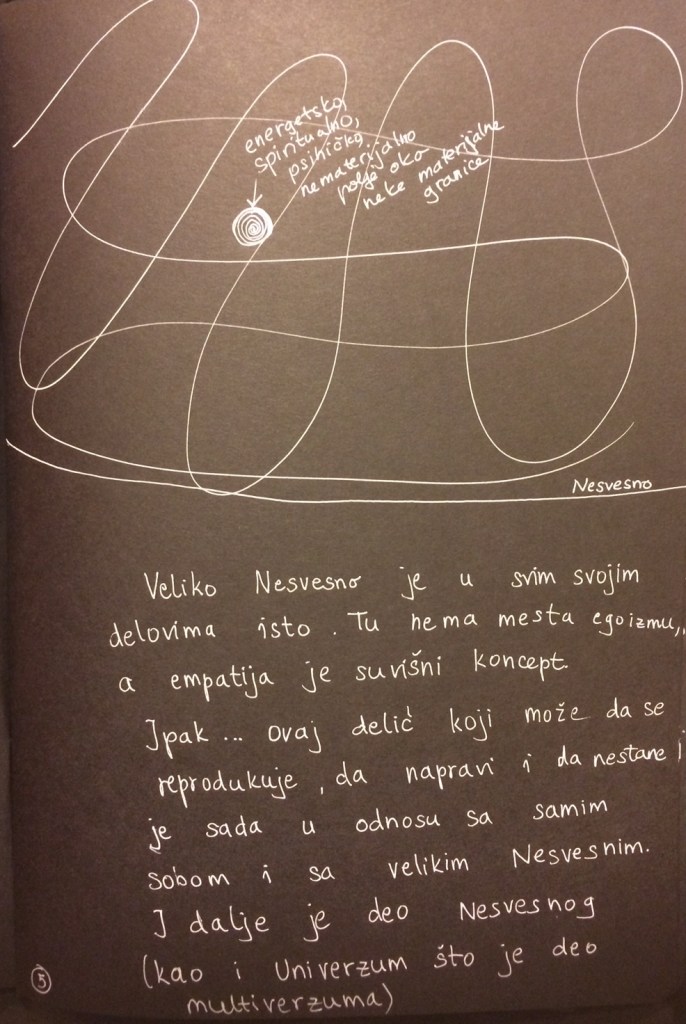 energetsko,
spiritualno,
psihičko,
nematerijalno
polje oko
neke materijalne
granice
Nesvesno
Veliko Nesvesno je u svim svojim
delovima isto. Tu nema mesta egoizmu,
a empatija je suvišni koncept.
Ipak... ovaj delić koji može da se
reprodukuje, da napravi i da nestane i
je sada u odnosu sa samim
sobom i sa velikim Nesvesnim.
I dalje je deo Nesvesnog
(kao i Univerzum što je deo
multiverzuma)
5